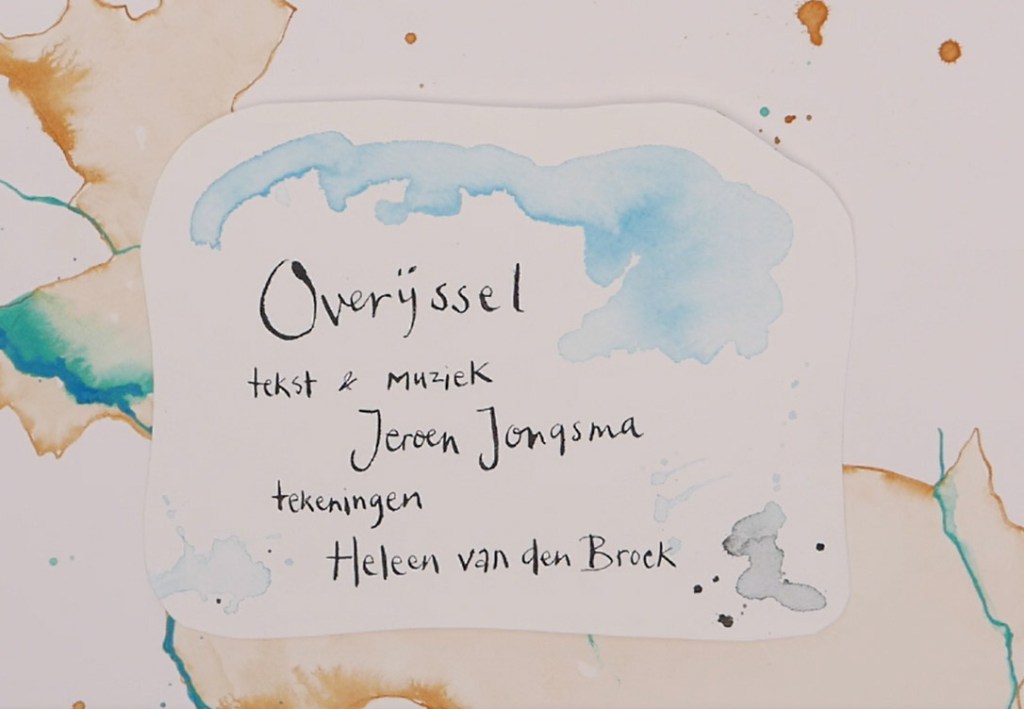 Overijssel
tekst & muziek
Jeroen Jongsma
tekeningen
Heleen van den Broek